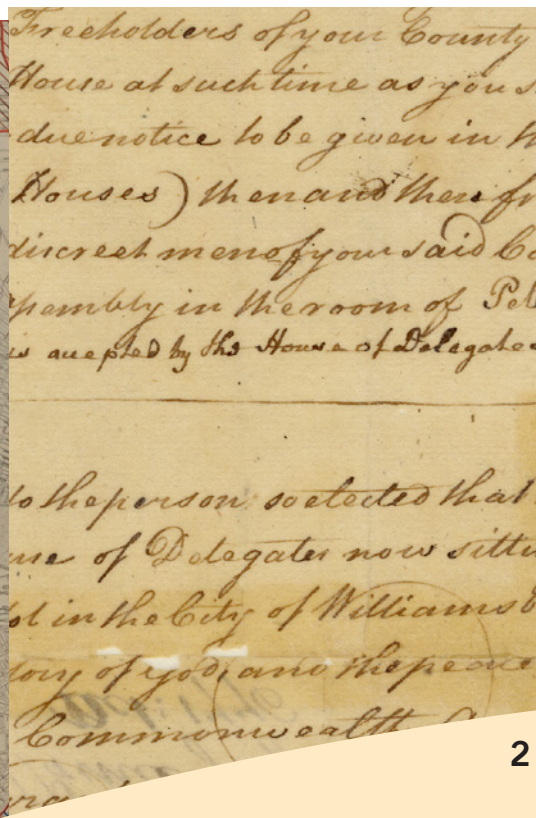 Freeholders of your County
House at such time as you s
due notice to be given in th
Houses) then and there fr
discreet men of your said Co
sembly in the room of Pel
is accepted by the House of Delegate
to the person so elected that
use of Delegates now sittin
in the City of Williamsb
lory of god, and the peace
Commonwealth
2